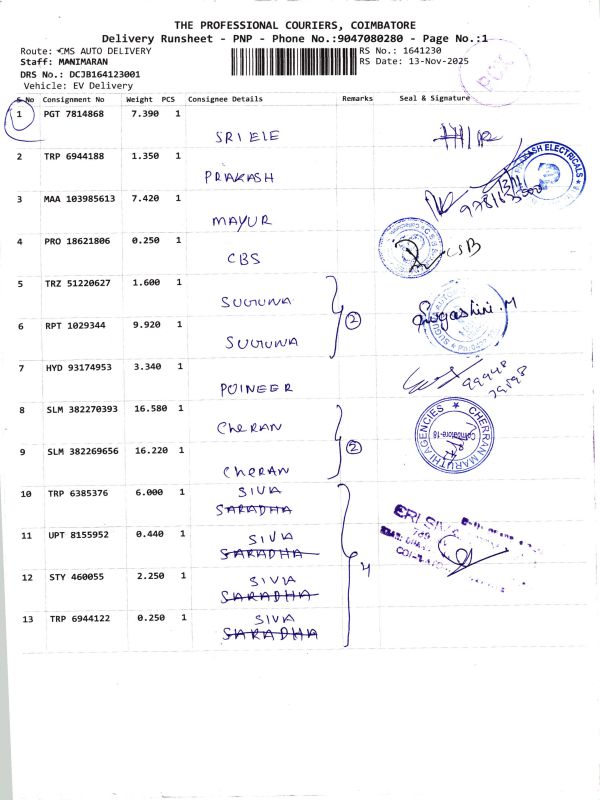 THE PROFESSIONAL COURIERS, COIMBATORE
Delivery Runsheet - PNP - Phone No.:9047080280 - Page No.:1
Route: CMS AUTO DELIVERY
RS No.: 1641230
Staff: MANIMARAN
RS Date: 13-Nov-2025
DRS No.: DCJB164123001
Vehicle: EV Delivery
POD
S No Consignment No Weight PCS Consignee Details Remarks Seal & Signature
1 PGT 7814868 7.390 1
SRI ELE
2 TRP 6944188 1.350 1
PRAKASH
3 MAA 103985613 7.420 1
MAYUR
4 PRO 18621806 0.250 1
CBS
CSB
5 TRZ 51220627 1.600 1
SUGUNA
2
Sugashini.M
6 RPT 1029344 9.920 1
SUGUNA
7 HYD 93174953 3.340 1
POINEER
8 SLM 382270393 16.580 1
CHERAN
2
CHERRAN MARUTHI AGENCIES
Coimbatore-18
9 SLM 382269656 16.220 1
CHERAN
10 TRP 6385376 6.000 1
SIVA
SARADHA
11 UPT 8155952 0.440 1
SIVA
SARADHA
4
12 STY 460055 2.250 1
SIVA
SARADHA
13 TRP 6944122 0.250 1
SIVA
SARADHA